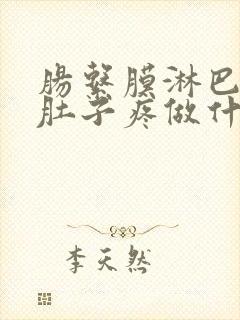 腸繫膜淋巴
肚子疼做什
李天然